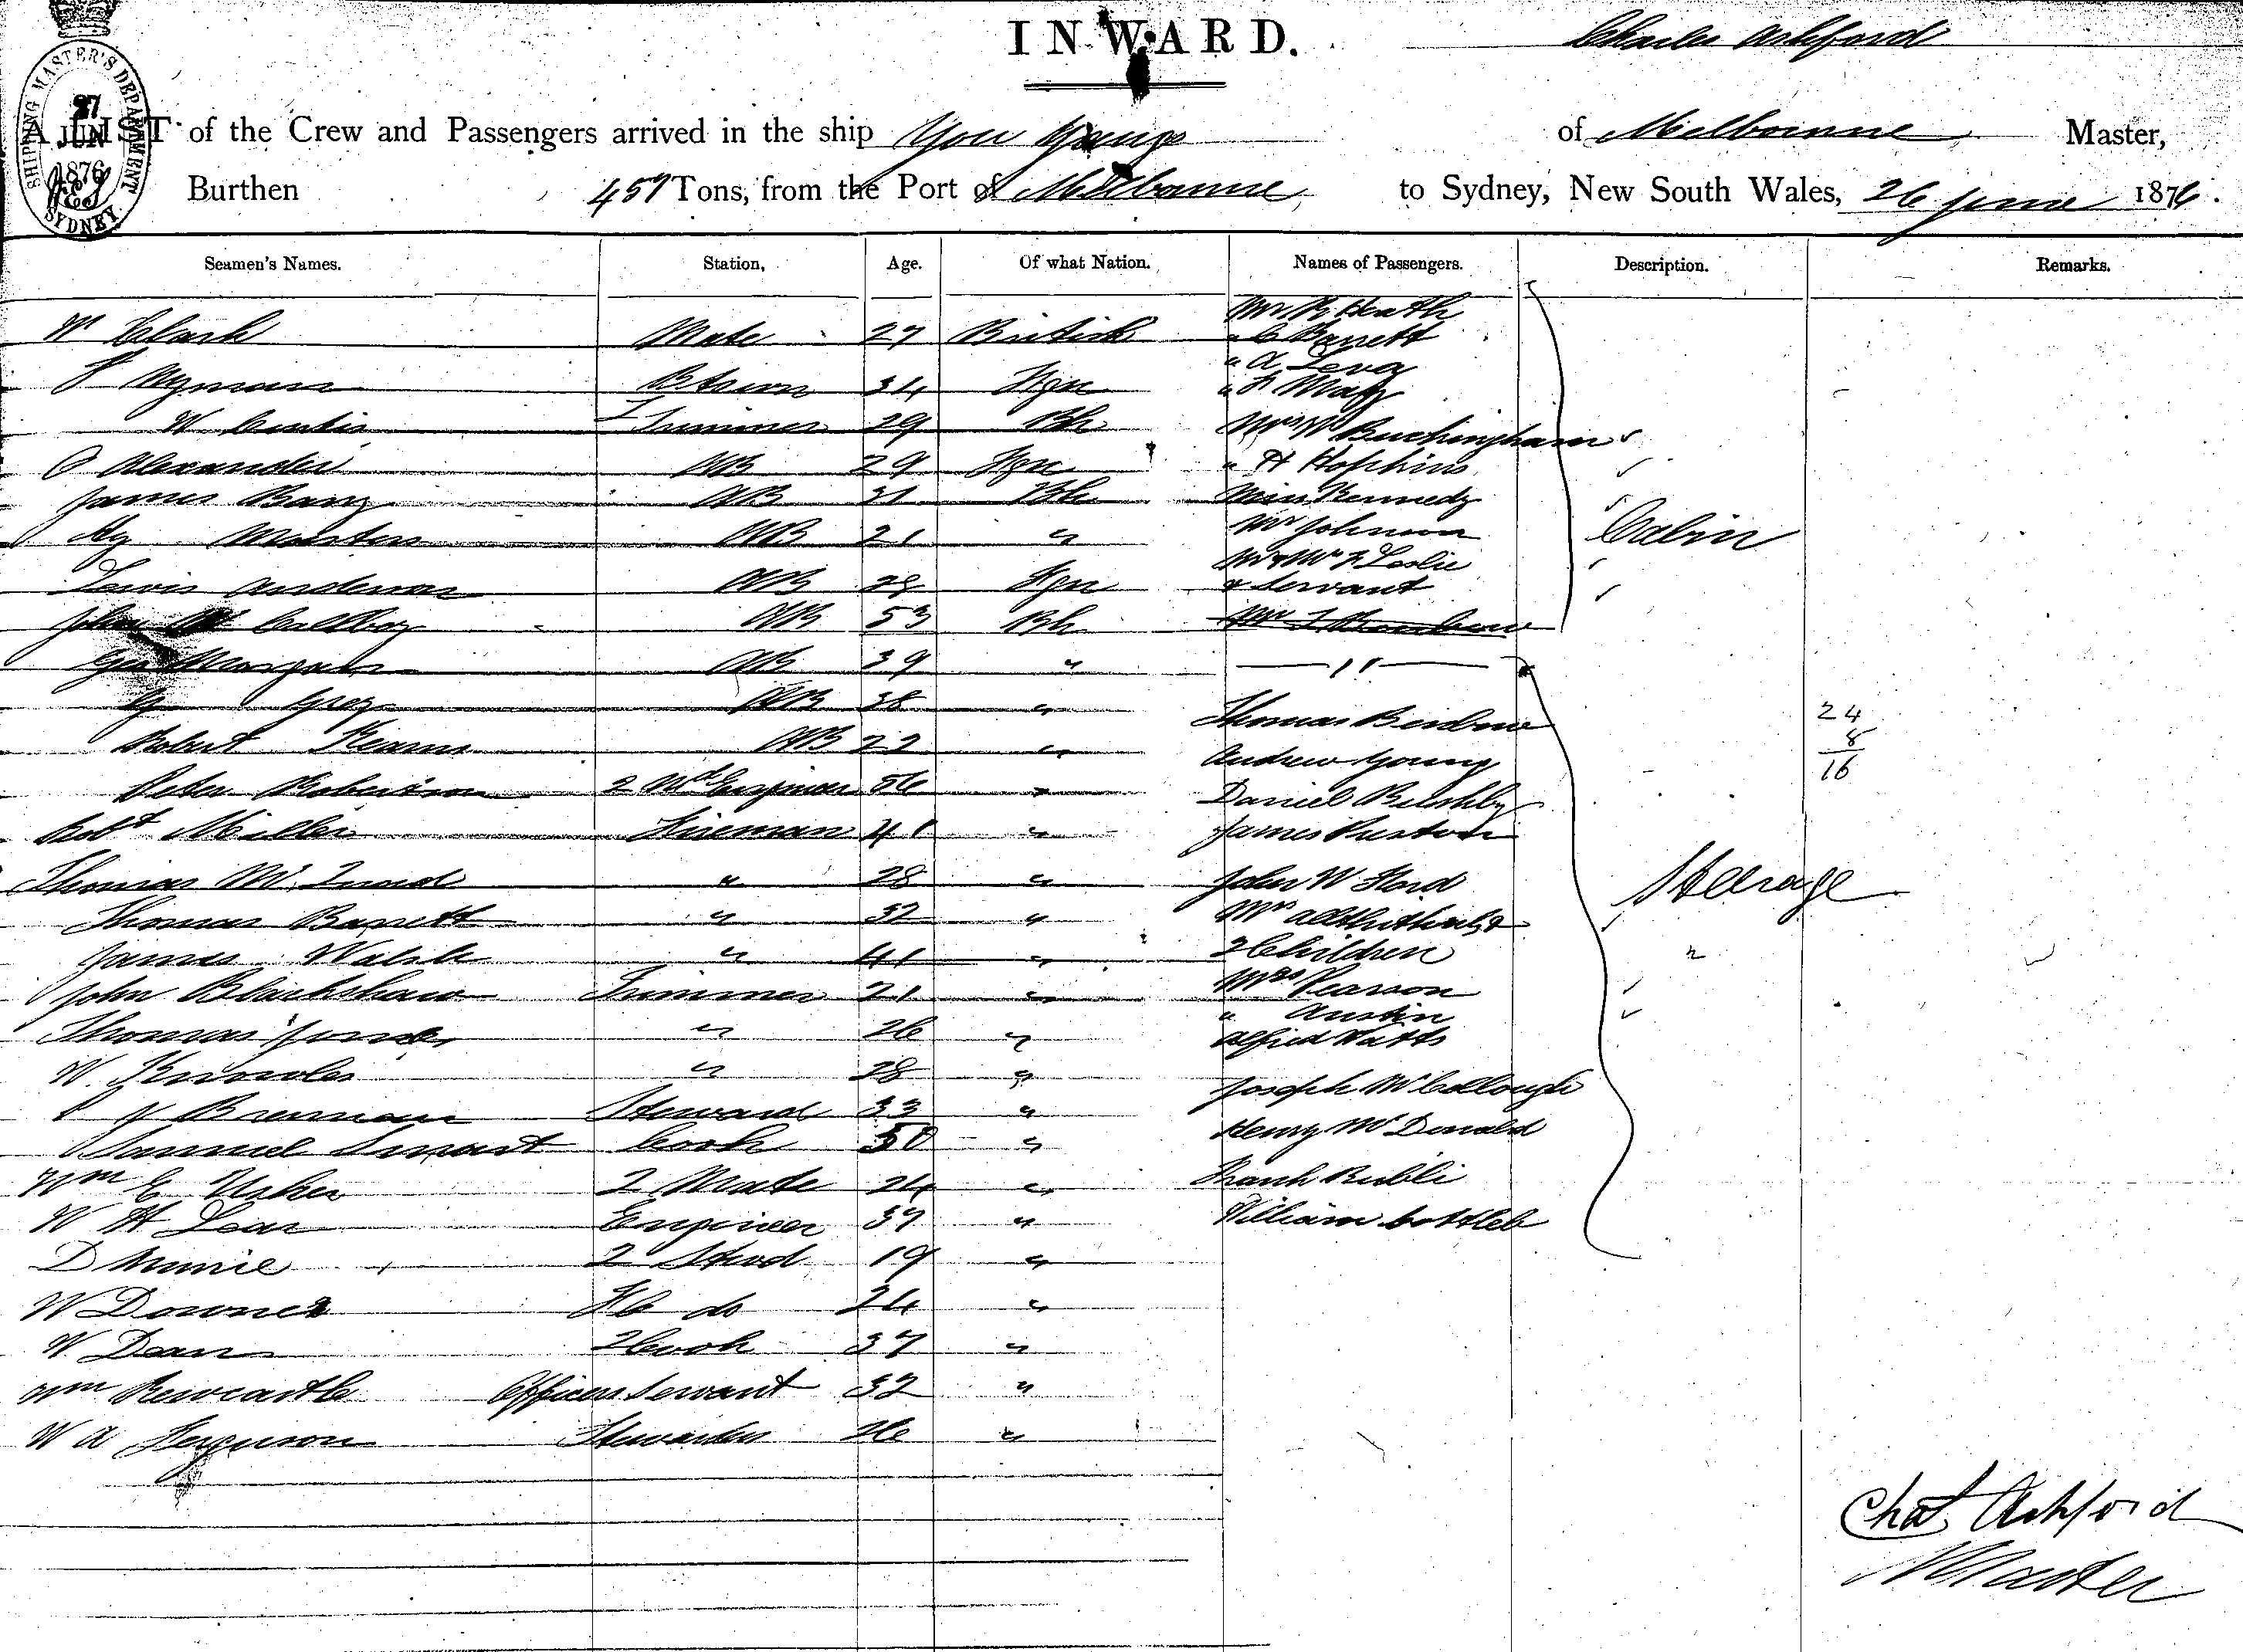 INWARD.
Charles Ashford
SHIPPING MASTER'S DEPARTMENT
27
JUN
1876
SYDNEY.
A LIST of the Crew and Passengers arrived in the ship You Yangs of Melbourne Master,
Burthen 457 Tons, from the Port of Melbourne to Sydney, New South Wales, 26 June 1876.
Seamen's Names. Station, Age. Of what Nation. Names of Passengers. Description. Remarks.
Mr R Heath
W Clark Mate 27 British " C Barrett
" A Levy
Nyman Btswn 34 Fgn "
W Curtis Trimmer 29 Bh Mrs W Buckingham
O Alexander AB 29 Fgn " H Hopkins
James Barry AB 31 Bh Miss Kennedy
Hy Martin AB 21 " Mr Johnson Cabin
Mr & Mrs F Leslie
Lewis Anderson AB 28 Fgn & Servant
John AB 53 Bh
Geo AB 39 " — " —
G Grey AB 38 " Thomas 24
Robert Kearns AB 22 " Andrew Young 8
Peter Robertson 2nd Engineer 56 " Daniel 16
Robt Miller Fireman 41 " James
Thomas " 28 " John W Steerage
Thomas Barrett " 32 " Mrs
James Walsh " 41 " 2 Children
John Blackshaw Trimmer 21 " Mrs Pearson
" Austin
Thomas Jones " 26 " Alfred Watts
W. Knowles " 28 " Joseph McCollough
Brennan Steward 33 "
Samuel Smart Cook 50 " Henry McDonald
Wm E Usher 2 Mate 24 " Frank
W H Lear Engineer 37 " William
D Munie 2 Stwd 19 "
W Downes F C do 24 "
W Dean 2 Cook 37 "
Wm Newcastle Officers Servant 32 "
W A Ferguson Stewardess 26 "
Chas Ashford
Master